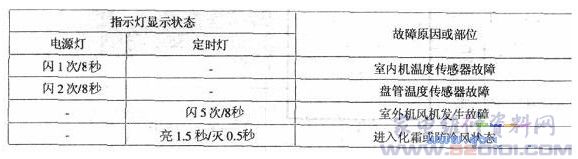 指示灯显示状态
故障原因或部位
电源灯 定时灯
闪1次/8秒 - 室内机温度传感器故障
闪2次/8秒 - 盘管温度传感器故障
- 闪5次/8秒 室外机风机发生故障
- 亮1.5秒/灭0.5秒 进入化霜或防冷风状态